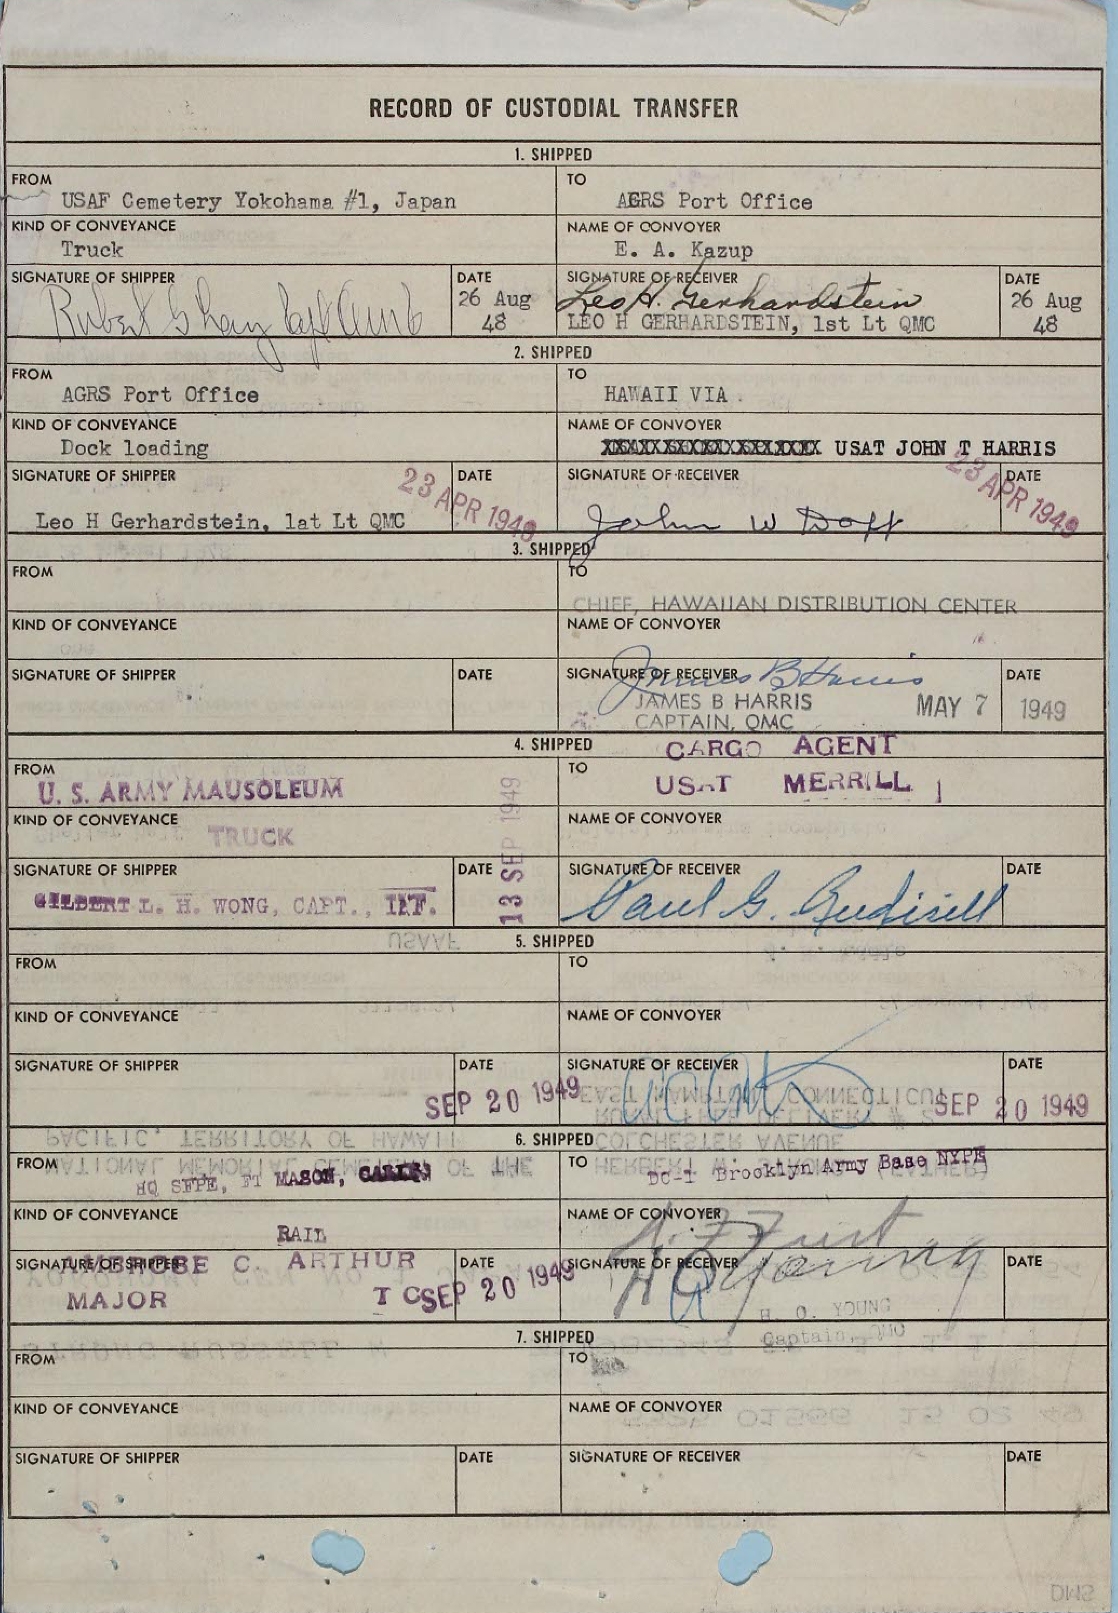 RECORD OF CUSTODIAL TRANSFER
1. SHIPPED
FROM
USAF Cemetery Yokohama #1, Japan
TO
AGRS Port Office
KIND OF CONVEYANCE
Truck
NAME OF CONVOYER
E. A. Kazup
SIGNATURE OF SHIPPER
Robert
DATE
26 Aug
48
SIGNATURE OF RECEIVER
Leo H. Gerhardstein
LEO H GERHARDSTEIN, 1st Lt QMC
DATE
26 Aug
48
2. SHIPPED
FROM
AGRS Port Office
TO
HAWAII VIA
KIND OF CONVEYANCE
Dock loading
NAME OF CONVOYER
USAT JOHN T HARRIS
SIGNATURE OF SHIPPER
Leo H Gerhardstein, 1at Lt QMC
DATE
23 APR 1949
SIGNATURE OF RECEIVER
John W
DATE
23 APR 1949
3. SHIPPED
FROM
TO
CHIEF, HAWAIIAN DISTRIBUTION CENTER
KIND OF CONVEYANCE
NAME OF CONVOYER
SIGNATURE OF SHIPPER
DATE
SIGNATURE OF RECEIVER
James B Harris
JAMES B HARRIS
CAPTAIN, QMC
DATE
MAY 7 1949
4. SHIPPED
FROM
U. S. ARMY MAUSOLEUM
TO
CARGO AGENT
USAT MERRILL
KIND OF CONVEYANCE
TRUCK
NAME OF CONVOYER
SIGNATURE OF SHIPPER
GILBERT L. H. WONG, CAPT., INF.
DATE
13 SEP 1949
SIGNATURE OF RECEIVER
Paul G.
DATE
5. SHIPPED
FROM
TO
KIND OF CONVEYANCE
NAME OF CONVOYER
SIGNATURE OF SHIPPER
DATE
SEP 20 1949
SIGNATURE OF RECEIVER
DATE
SEP 20 1949
6. SHIPPED
FROM
HQ SFPE, FT MASON, CALIF
TO
DC-1 Brooklyn Army Base NYPE
KIND OF CONVEYANCE
RAIL
NAME OF CONVOYER
SIGNATURE OF SHIPPER
AMBROSE C. ARTHUR
MAJOR T C
DATE
SEP 20 1949
SIGNATURE OF RECEIVER
H O Young
H. O. YOUNG
Captain, QMC
DATE
7. SHIPPED
FROM
TO
KIND OF CONVEYANCE
NAME OF CONVOYER
SIGNATURE OF SHIPPER
DATE
SIGNATURE OF RECEIVER
DATE